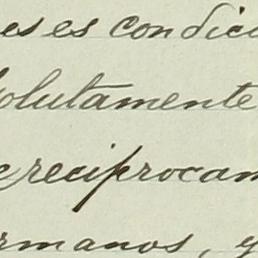 es es condici
olutamente
e reciprocam
rmanos, y